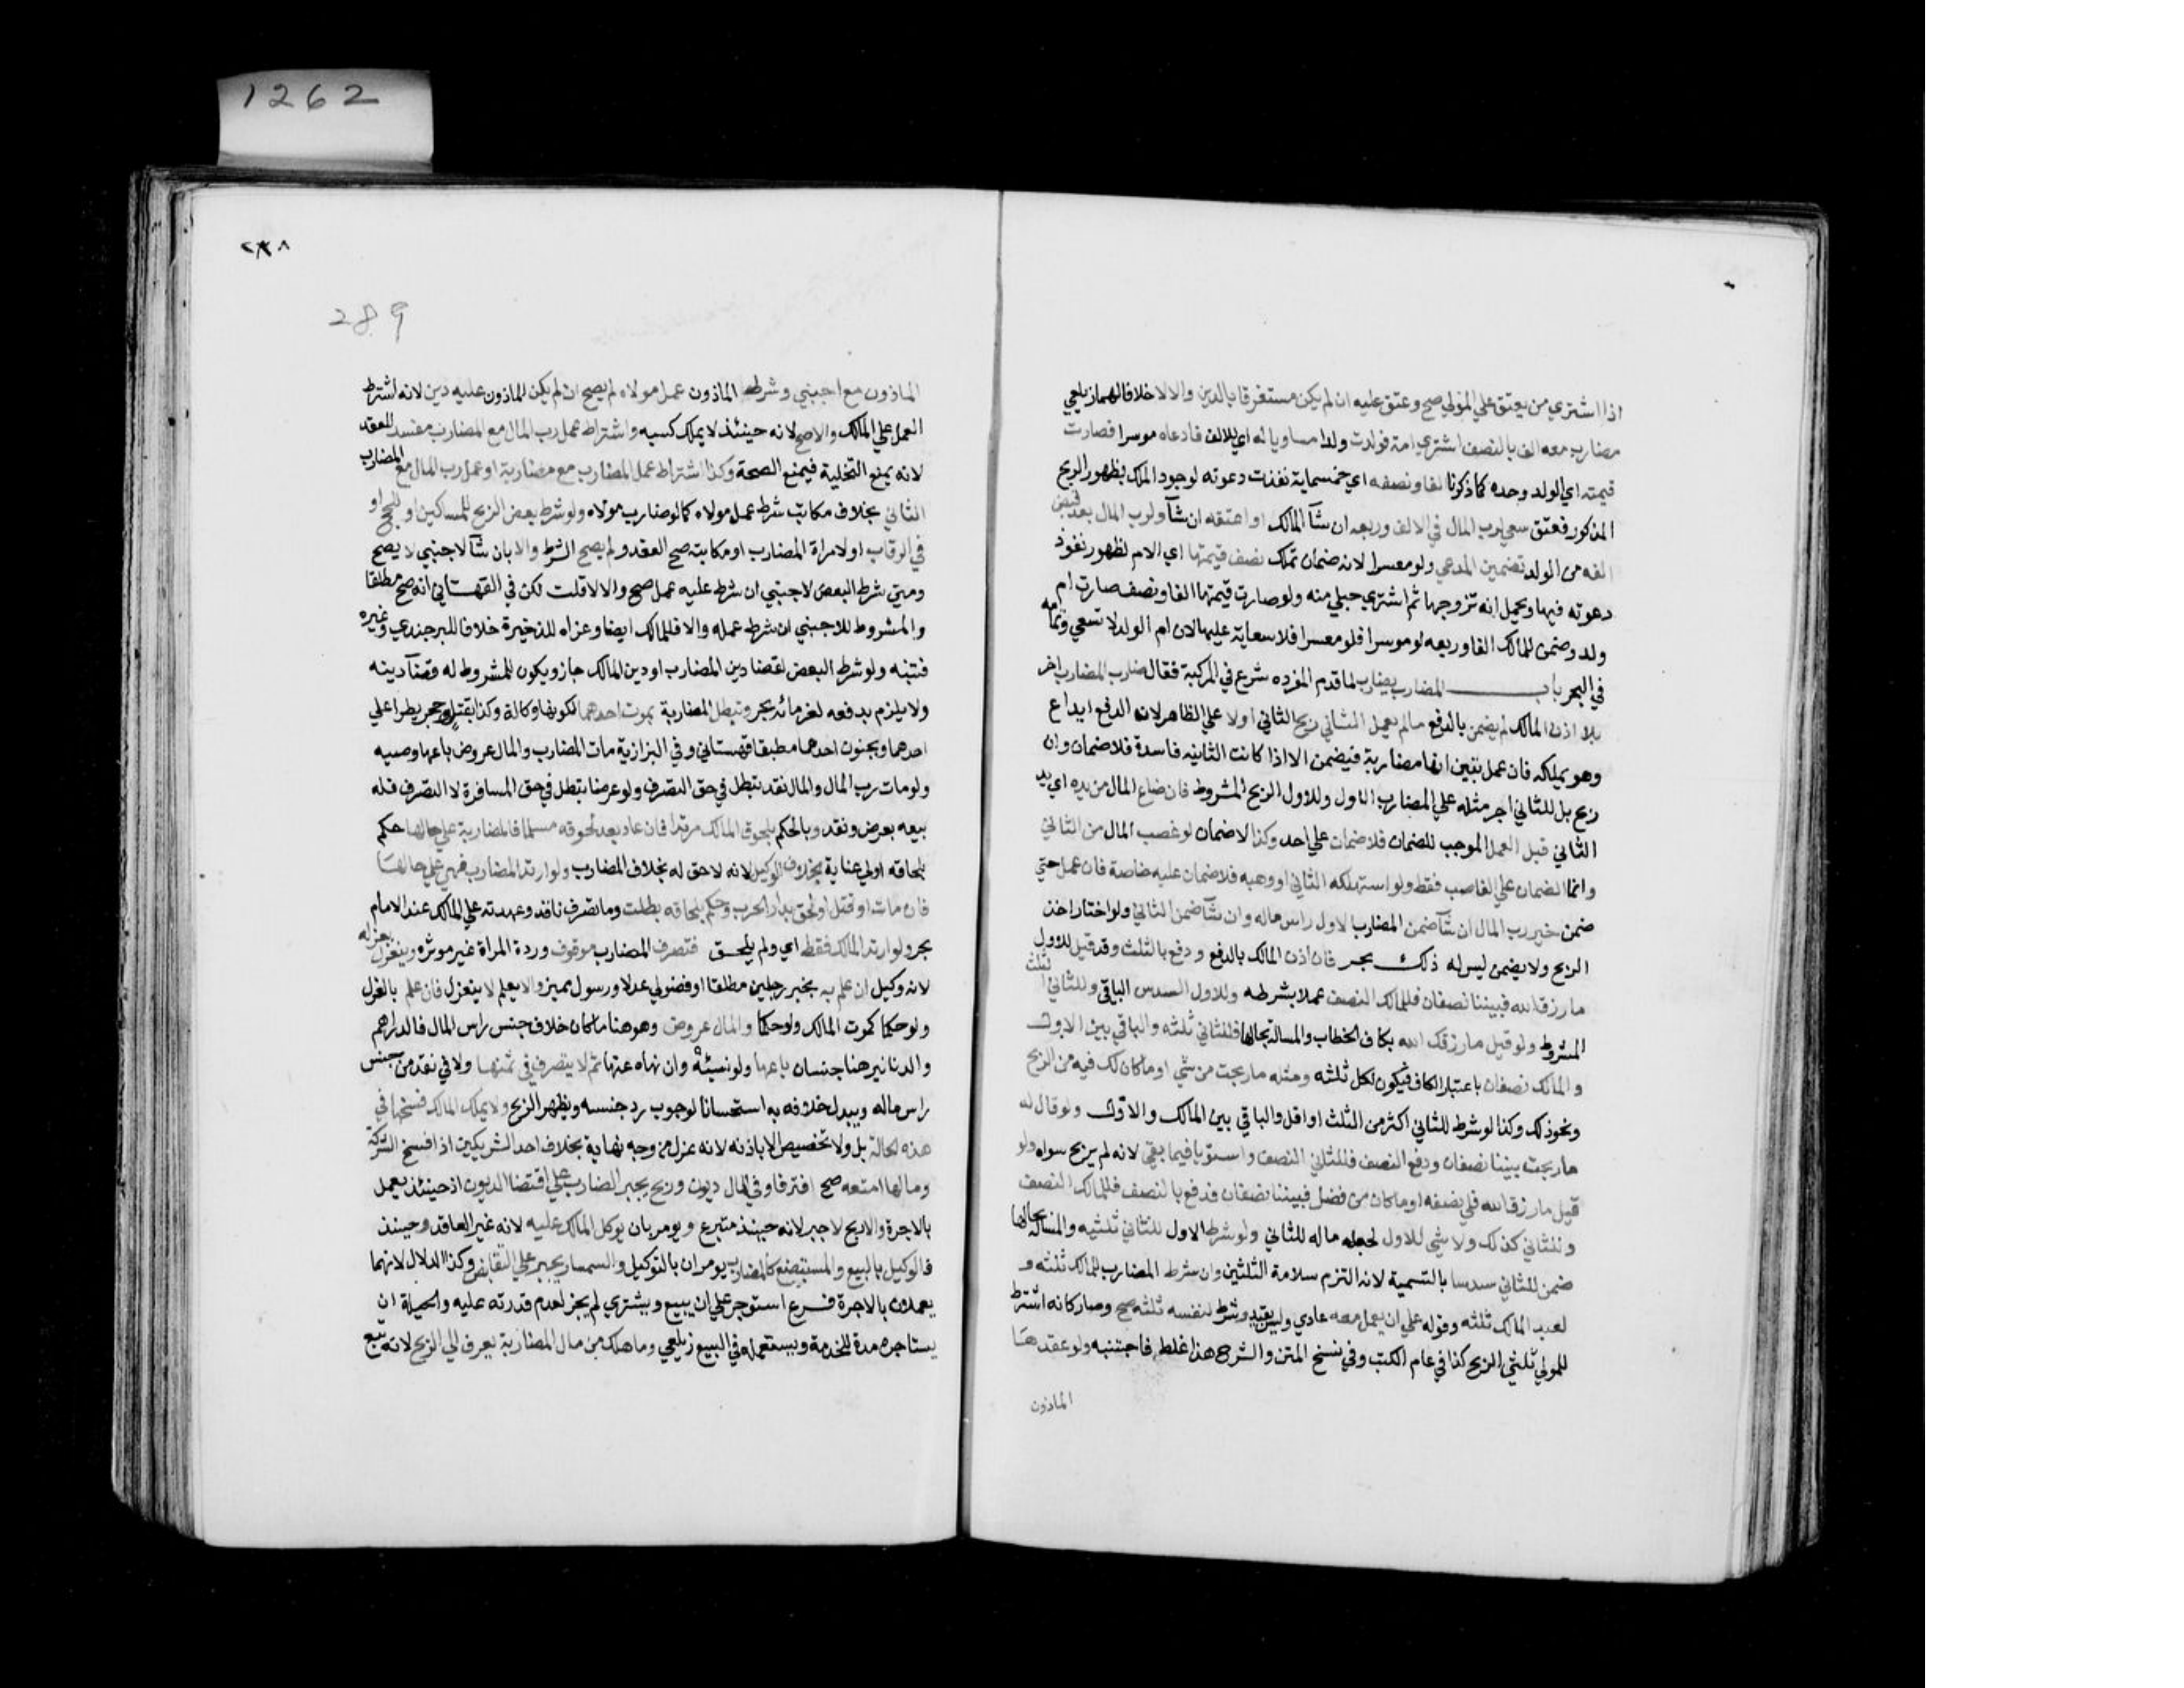 1262
اذا اشتري من يعتق علي المولي صح وعتق عليه ان لم يكن مستغرقا بالدين والالا خلافا لهما زيلعي
مضارب معه الف بالنصف اشتري امة فولدت ولدا مساويا له اي للالف فادعاه موسرا فصارت
قيمته اي الولد وحده كما ذكرنا الفا ونصفه اي خمسماية نفذت دعوته لوجود الملك بظهور الربح
المذكور فعتق سعي لرب المال في الالف وربعه ان شآ المالك او اعتقه ان شآ ولرب المال بعد قبض
الفه من الولد تضمين المدعي ولو معسرا لانه ضمان تملك نصف قيمتها اي الام لظهور نفوذ
دعوته فيها ويحمل انه تزوجها ثم اشتري حبلي منه ولو صارت قيمتها الفا ونصف صارت ام
ولد وضمن للمالك الفا وربعه لو موسرا فلو معسرا فلا سعاية عليها لان ام الولد لا تسعي وتمامه
في البحر باب المضارب يضارب لما قدم المفرده شرع في المركبة فقال ضارب المضارب اخر
بلا اذن المالك لم يضمن بالدفع مالم يعمل الثاني ربح الثاني اولا علي الظاهر لانه الدفع ايداع
وهو يملكه فان عمل تبين انها مضاربة فيضمن الا اذا كانت الثانيه فاسدة فلا ضمان وان
ربح بل للثاني اجر مثله علي المضارب الاول وللاول الربح المشروط فان ضاع المال من يده اي يد
الثاني قبل العمل الموجب للضمان فلا ضمان علي احد وكذا لاضمان لو غصب المال من الثاني
وانما الضمان علي الغاصب فقط ولو استهلكه الثاني او وهبه فلا ضمان عليه خاصة فان عمل حتي
ضمن خير رب المال ان شآ ضمن المضارب الاول راس ماله وان شآ ضمن الثاني ولو اختار اخذ
الربح ولا يضمن ليس له ذلك بحر فان اذن المالك بالدفع ودفع بالثلث وقد قيل للاول
مارزق الله فبيننا نصفان فللمالك النصف عملا بشرطه وللاول السدس الباقي وللثاني الثلث
المشروط ولو قيل مارزقك الله بكاف الخطاب والمسالة بحالها فللثاني ثلثه والباقي بين الاول
والمالك نصفان باعتبار الكاف فيكون لكل ثلثه ومثله ماربحت من شي او ماكان لك فيه من الربح
ونحو ذلك وكذا لو شرط للثاني اكثر من الثلث او اقل والباقي بين المالك والاول ولو قال له
ماربحت بيننا نصفان ودفع النصف فللثاني النصف واستويا فيما بقي لانه لم يربح سواه ولو
قيل مارزق الله فلي نصفه او ماكان من فضل فبيننا نصفان فدفع بالنصف فللمالك النصف
وللثاني كذلك ولا شي للاول لجعله ماله للثاني ولو شرط الاول للثاني ثلثيه والمسالة بحالها
ضمن للثاني سدسا بالتسمية لانه التزم سلامة الثلثين وان شرط المضارب للمالك ثلثه و
لعبد المالك ثلثه وقوله علي ان يعمل معه عادي وليس بقيد وشرط لنفسه ثلثه صح وصار كانه اشترط
للمولي ثلثي الربح كذا في عام الكتب وفي نسخ المتن والشرح هذا غلط فاجتنبه ولو عقدها
الماذون
٢٨٨
289
الماذون مع اجنبي وشرط الماذون عمل مولاه لم يصح ان لم يكن الماذون عليه دين لانه اشترط
العمل علي المالك والاصح لانه حينئذ لا يملك كسبه واشتراط عمل رب المال مع المضارب مفسد للعقد
لانه يمنع التخلية فيمنع الصحة وكذا اشتراط عمل المضارب مع مضاربة او عمل رب المال مع المضارب
الثاني بخلاف مكاتب شرط عمل مولاه كمالو ضارب مولاه ولو شرط بعض الربح للمساكين او للحج او
في الرقاب او لامراة المضارب او مكاتبته صح العقد ولم يصح الشرط والا بان شآ لاجنبي لا يصح
ومتي شرط البعض لاجنبي ان شرط عليه عمل صح والالا قلت لكن في القهستاني انه صح مطلقا
والمشروط للاجنبي ان شرط عمله والا فللمالك ايضا وعزاه للذخيرة خلافا للبرجندي وغيره
فتنبه ولو شرط البعض لقضا دين المضارب او دين المالك جاز ويكون للمشروط له قضآ دينه
ولا يلزم بدفعه لغرمائه بحر وتبطل المضاربة بموت احدهما لكونها وكالة وكذا بقتل وحجر يطرا علي
احدهما وبجنون احدهما مطبقا قهستاني وفي البزازية مات المضارب والمال عروض باعها وصيه
ولو مات رب المال والمال نقد تبطل في حق التصرف ولو عرضا تبطل في حق المسافرة لا التصرف فله
بيعه بعرض ونقد وبالحكم بلحوق المالك مرتدا فان عاد بعد لحوقه مسلما فالمضاربة علي حالها حكم
بلحاقه اولي عناية بخلاف الوكيل لانه لاحق له بخلاف المضارب ولو ارتد المضارب فهي علي حالها
فان مات او قتل او لحق بدار الحرب وحكم بلحاقه بطلت وما تصرف نافذ وعهدته علي المالك عند الامام
بحر ولو ارتد المالك فقط اي ولم يلحق فتصرف المضارب موقوف وردة المراة غير موثره وينعزل بعزله
لانه وكيل ان علم به بخبر رجلين مطلقا او فضولي عدل او رسول مميز والا يعلم لا ينعزل فان علم بالعزل
ولو حكما كموت المالك ولو حكما والمال عروض وهو هنا ماكان خلاف جنس راس المال فالدراهم
والدنانير هنا جنسان باعها ولو نسيئة وان نهاه عنها ثم لا يتصرف في ثمنها ولا في نقد من جنس
راس ماله ويبدل خلافه به استحسانا لوجوب رد جنسه ويظهر الربح ولا يملك المالك فسخها في
هذه الحالة بل ولا تخصيص الاباذنه لانه عزل من وجه نهاية بخلاف احد الشريكين اذا فسخ الشركة
ومالها امتعه صح افترقا وفي المال ديون وربح يجبر المضارب علي اقتضا الديون اذ حينئذ يعمل
بالاجرة والا ربح لا جبر لانه حينئذ متبرع ويومر بان يوكل المالك عليه لانه غير العاقد وحينئذ
فالوكيل بالبيع والمستبضع كالمضارب يومران بالتوكيل والسمسار يجبر علي التقابض وكذا الدلال لانهما
يعملان بالاجرة فرع استوجر علي ان يبيع ويشتري لم يجز لعدم قدرته عليه والحيلة ان
يستاجره مدة للخدمة ويستعمله في البيع زيلعي وما هلك من مال المضاربة يصرف الي الربح لانه تبع